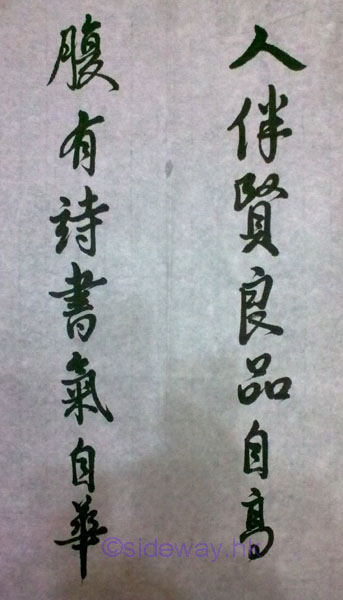 人伴賢良品自高
腹有詩書氣自華
©sideway.hk